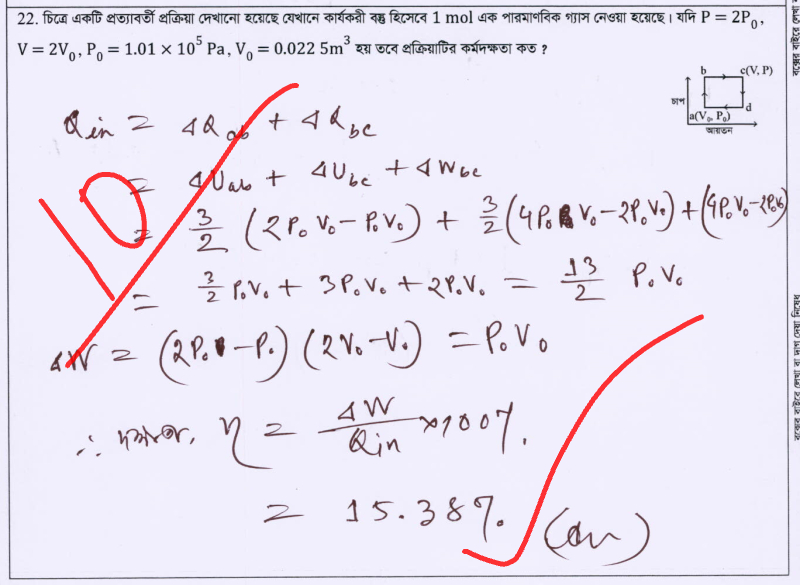 22. চিত্রে একটি প্রত্যাবর্তী প্রক্রিয়া দেখানো হয়েছে যেখানে কার্যকরী বস্তু হিসেবে 1 mol এক পারমাণবিক গ্যাস নেওয়া হয়েছে। যদি P = 2P₀,
V = 2V₀, P₀ = 1.01 × 10⁵ Pa, V₀ = 0.022 5m³ হয় তবে প্রক্রিয়াটির কর্মদক্ষতা কত ?
b c(V, P)
চাপ
d
a(V₀, P₀)
আয়তন
Qin = ΔQab + ΔQbc
= ΔUab + ΔUbc + ΔWbc
= 3/2 (2P₀V₀ - P₀V₀) + 3/2 (4P₀V₀ - 2P₀V₀) + (4P₀V₀ - 2P₀V₀)
= 3/2 P₀V₀ + 3P₀V₀ + 2P₀V₀ = 13/2 P₀V₀
ΔW = (2P₀ - P₀) (2V₀ - V₀) = P₀V₀
∴ η = ΔW/Qin × 100%.
= 15.38%. (Ans)
10
বক্সের বাইরে লেখা বা দাগ দেয়া নিষেধ